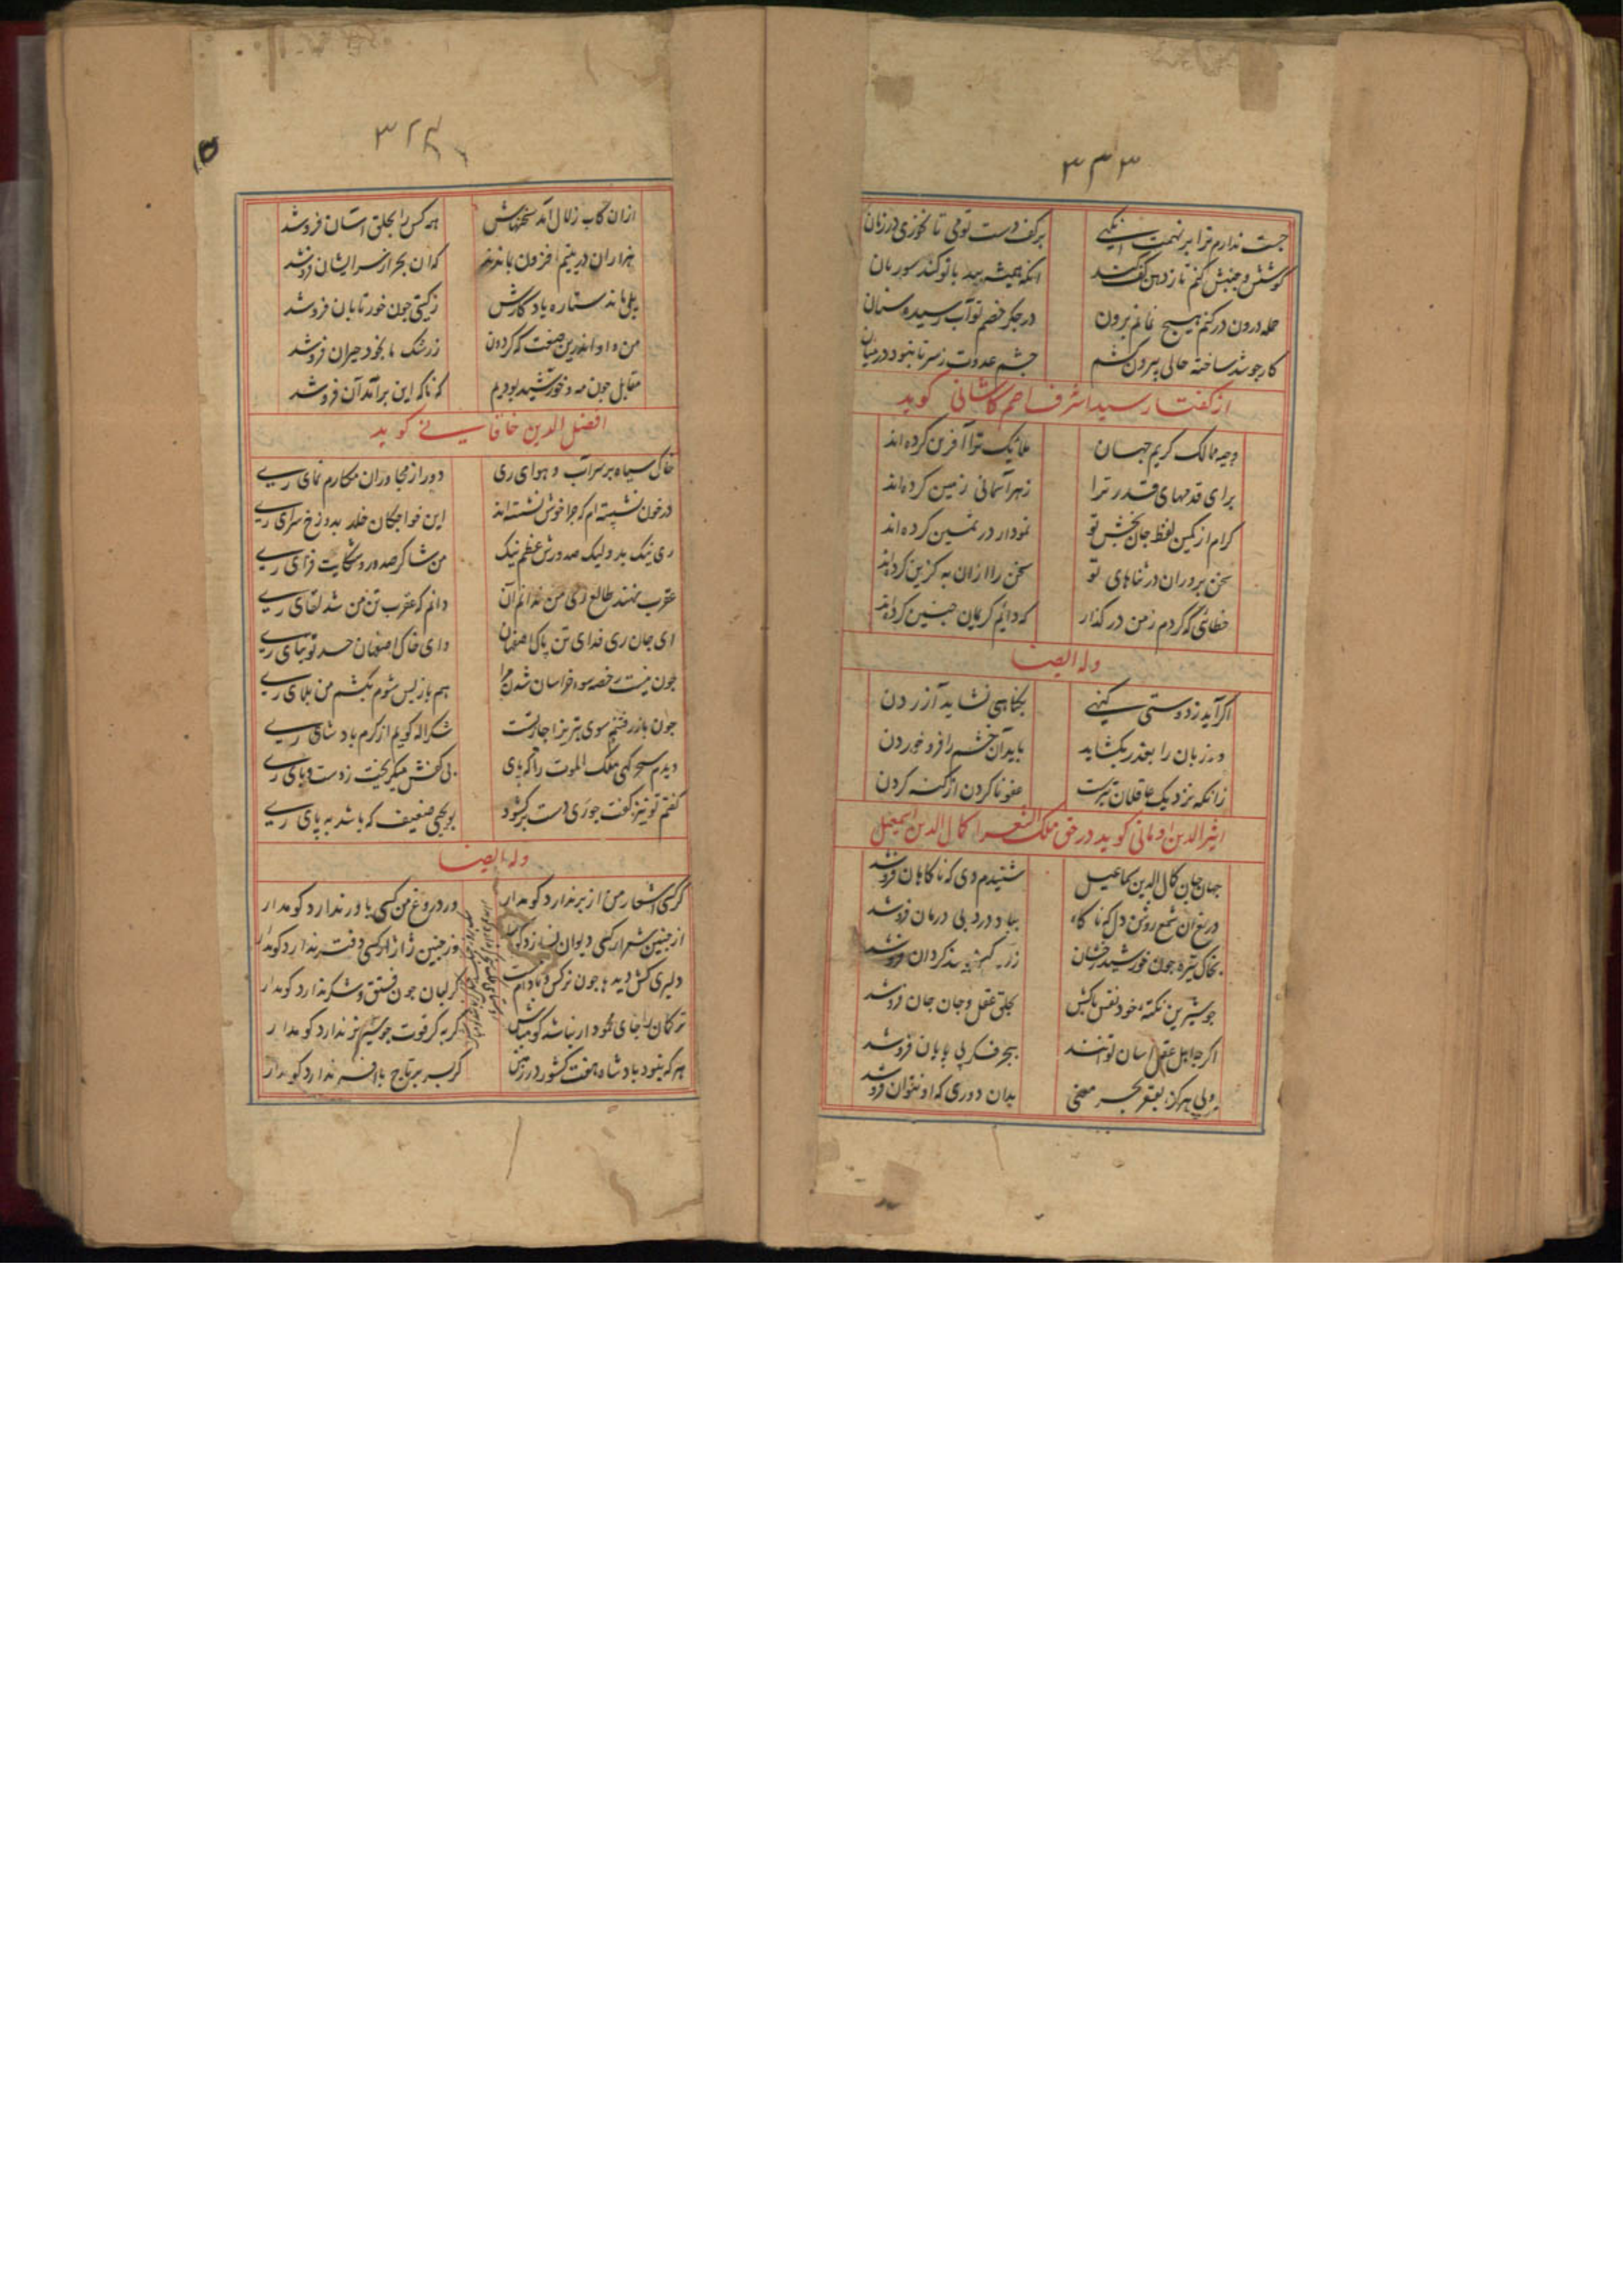 ۳۳۳
جست ندارم ترا بر نهمت
بر کف دست تو می تا نخوری در زبان
کوشش و جنبش کنم تا ز دهن کف کند
آنکه همیشه بید با تو کند سوزیان
حمله درون در کنم هیچ نمانم برون
در جگر خصم تو آب رسیده سنان
کار چو شد ساخته حالی بیرون کشم
چشم عدوت ز سر تا بنبود در میان
از گفتار سید اشرف کاشانی گوید
وجیه ممالک کریم جهان
ملایک ترا آفرین کرده‌اند
برای قدمهای قدر ترا
زهر آسمانی زمین کرده‌اند
کرام از کمین لفظ جان بخش تو
نمودار در ثمین کرده‌اند
سخن پروران در ثناهای تو
سخن را ازان به گزین کرده‌اند
خطائی که کردم ز من در گذار
که دایم کریمان چنین کرده‌اند
وله ایضا
اگر آید ز دوستی گنهی
بگناهی نشاید آزردن
ور زبان را بعذر بگشاید
باید آن خشم را فرو خوردن
زانکه نزدیک عاقلان بترست
عفو ناکردن از گنه کردن
اثیر الدین اومانی گوید در حق ملک الشعرا کمال الدین اسمعیل
جهان جان کمال الدین سماعیل
شنیدم دی که ناگاهان فروشد
دریغ آن شمع روشن دل که ناگاه
بباد درد بی درمان فروشد
بخاک تیره چون خورشید رخشان
زر گردان فروشد
چو شیرین نکته خود نفس پاکش
بحلق عقل و جان جان فروشد
اگر چه اهل عقل آسان توانند
ببحر فکر بی پایان فروشد
ولی هرگز بقعر بحر معنی
بدان دوری که او نتوان فروشد
۳۳۴
ازان کاب زلال آمد سخنهاش
هر کس را بحلق آسان فروشد
هزاران در یتیم افزون بماندند
که آن بحر از سر ایشان فروشد
بلی ماند ستاره یاد گارش
ز گیتی چون خور تابان فروشد
من و او اندرین صنعت که گردون
ز رشک ما بخود حیران فروشد
مقابل چون مه و خورشید بودیم
که ناگه این برآمد آن فروشد
افضل الدین خاقانی گوید
خاک سیاه بر سر آب و هوای ری
دور از مجاوران مکارم نمای ری
در خون نشسته‌ام که چرا خوش نشسته‌اند
این خواجگان خلد بدوزخ سرای ری
ری نیک بد ولیک صدورش عظیم نیک
من شاکر صدور و شکایت فزای ری
عقرب نهند طالع ری من ندانم آن
دانم که عقرب تن من شد لقای ری
ای جان ری فدای تن پاک اصفهان
وای خاک اصفهان حسد توتیای ری
چون نیست رخصه سوی خراسان شدن مرا
هم باز پس شوم نکشم من بلای ری
چون باز رفتنم سوی تبریز اجازتست
شکرانه گویم از کرم پادشای ری
دیدم سحرگهی ملک الموت را که پای
بی کفش میگریخت ز دست وبای ری
گفتم تو نیز گفت چو ری دست برگشود
بو یحیی ضعیف که باشد به پای ری
وله ایضا
گر کسی اشعار من از بر ندارد گو مدار
ور دروغ من کسی باور ندارد گو مدار
از چنین شعر ار کسی دیوان نسازد گو
وز چنین ژاژ ار کسی دفتر ندارد گو مدار
دلبری کش دیده‌ها چون نرگس و بادام
گر لبان چون فستق و شکر ندارد گو مدار
ترکان را جای محمود ار نباشد گو مباش
گربه گر قوت چو شیر نر ندارد گو مدار
هر که بنود پادشاه هفت کشور در زمین
گر بسر بر تاج یا افسر ندارد گو مدار